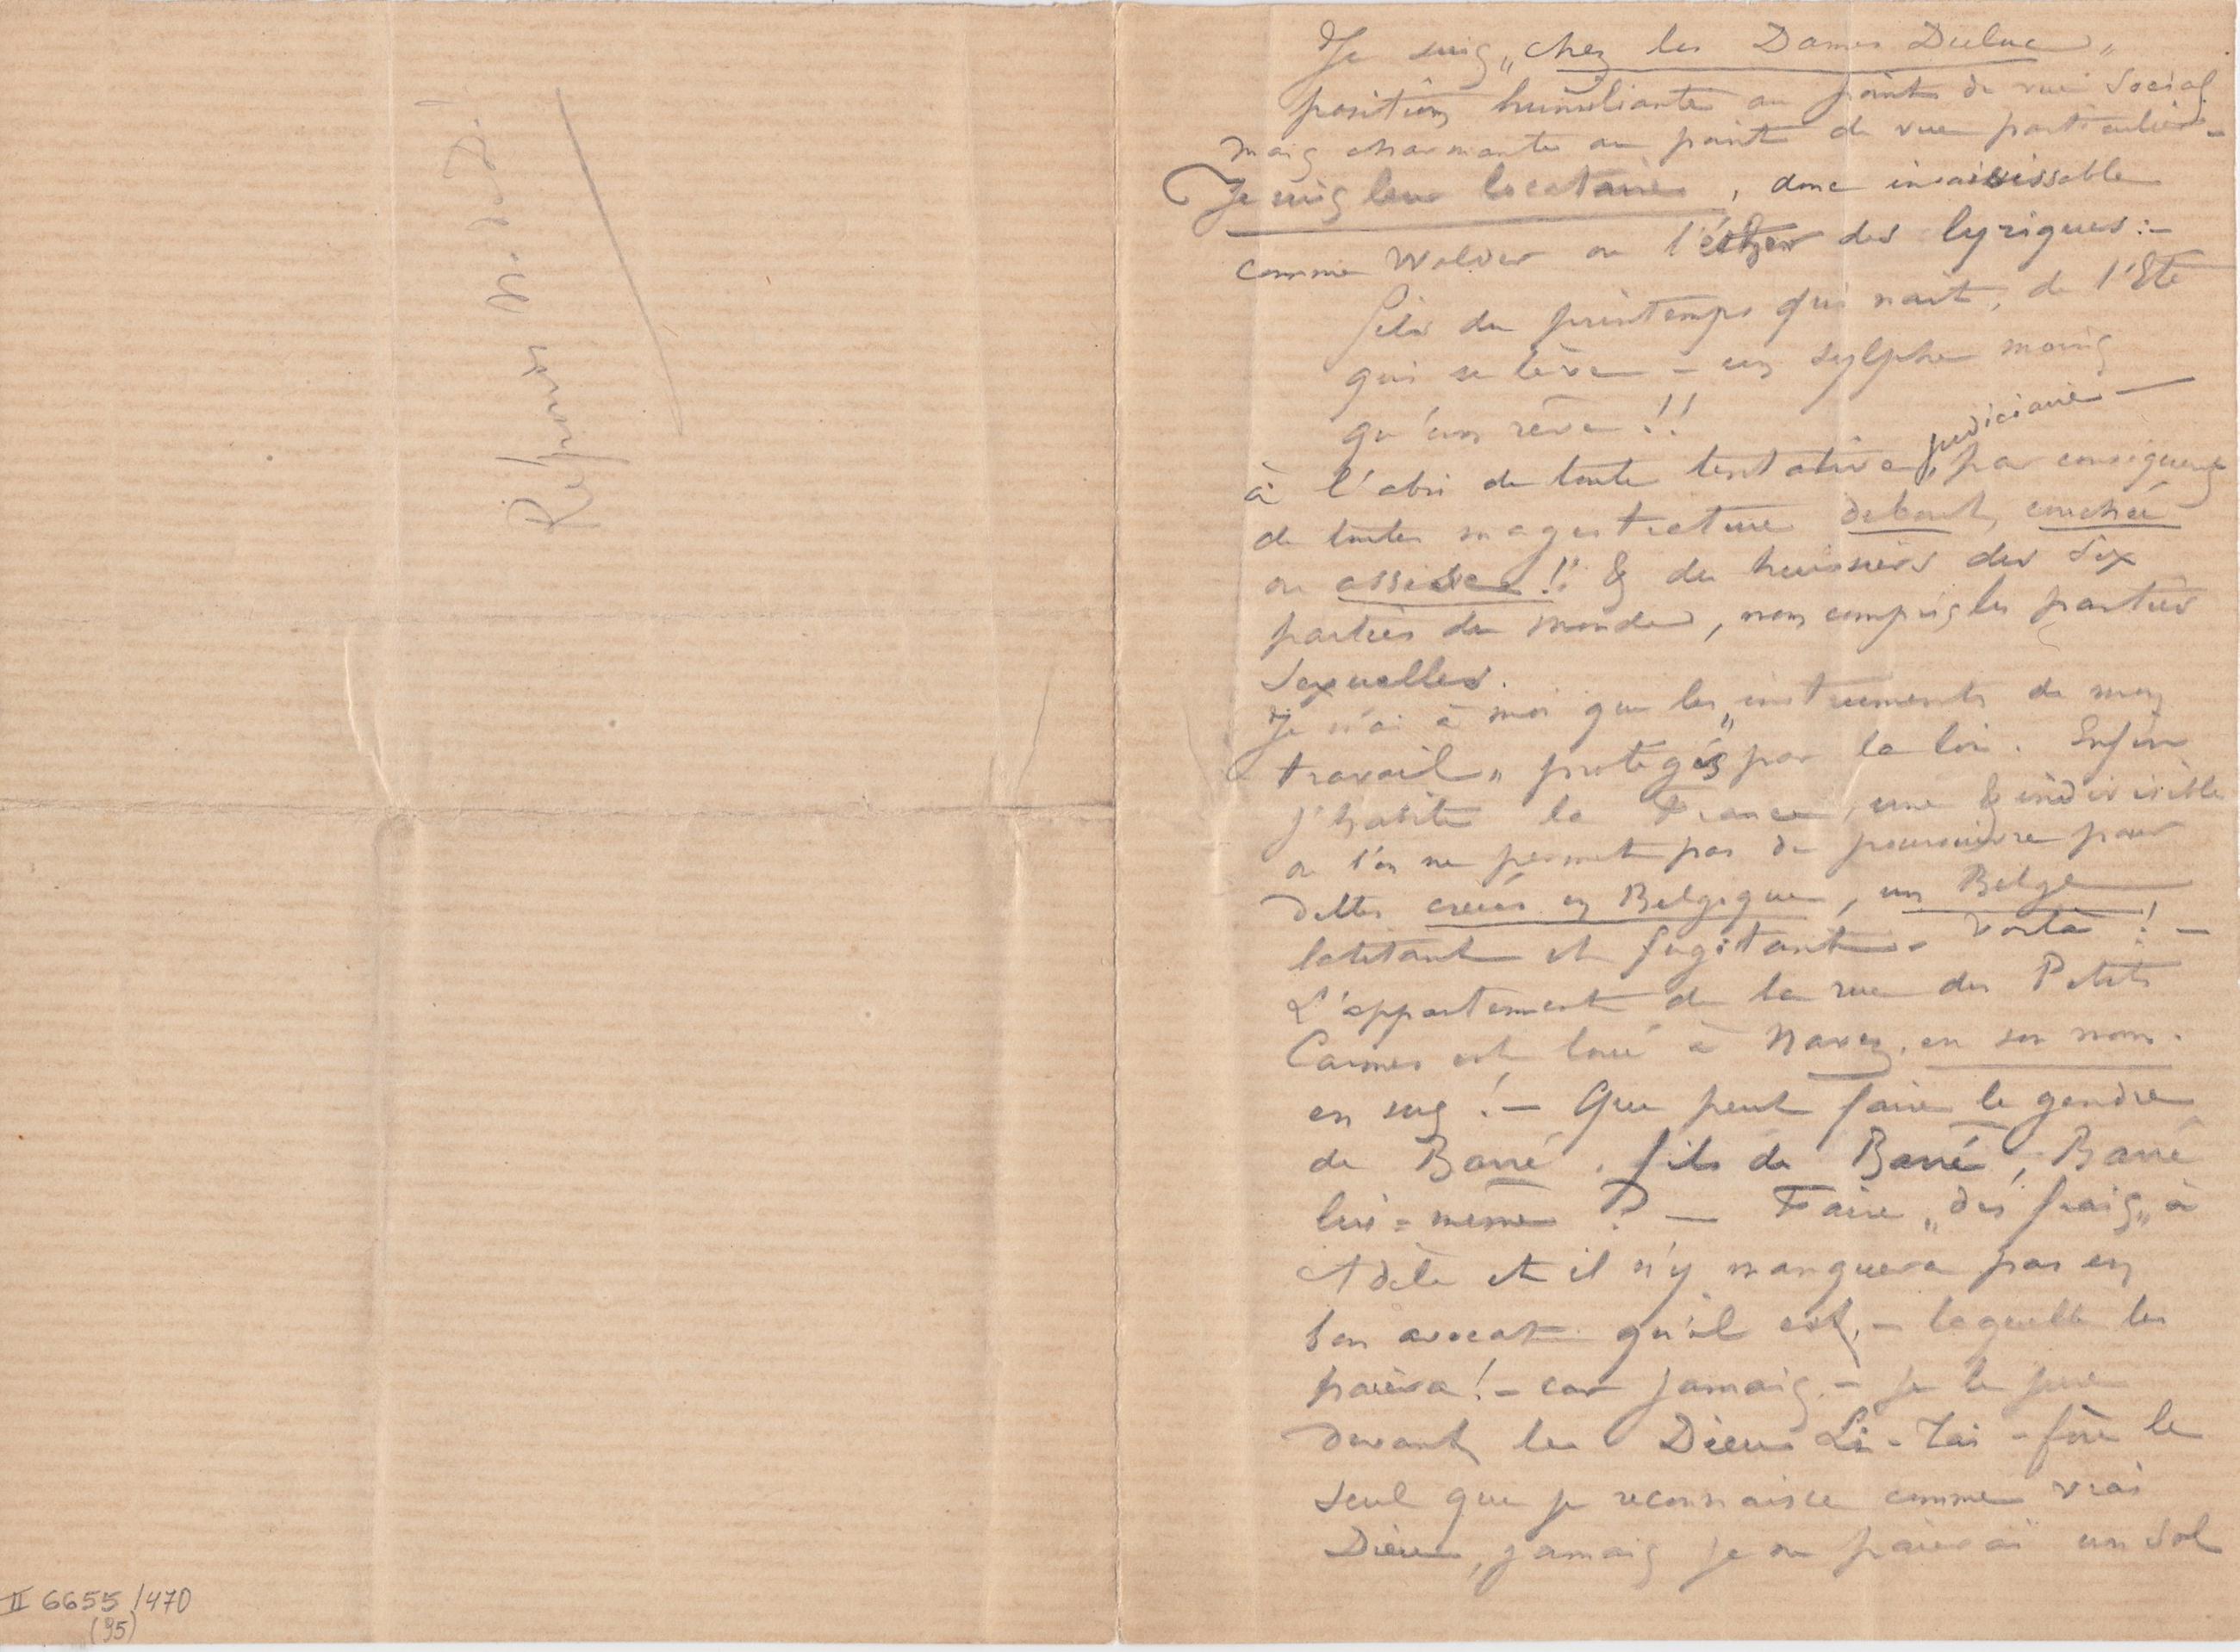 II 6655/470
(95)
Je suis „chez les Dames Duluc„
position humiliante au point de vue social
mais charmante au point de vue particulier –
Je suis leur locataire, donc insaisissable
comme Walder ou l'éther des lyriques :–
Fils du printemps qui nait, de l'Eté
qui se lève – un sylphe moins
qu'un rêve !!
à l'abri de toute tentative judiciaire – par conséquent
de toute magistrature debout, couchée
ou assise !! & des huissiers des six
parties du monde, non compris les parties
sexuelles.
Je n'ai à moi que les „instruments de mon
travail„ protégés par la loi. Enfin
j'habite la France, une & indivisible
où l'on ne permet pas de poursuivre pour
dettes créées en Belgique, un Belge
latitant et fugitant – voilà ! –
L'appartement de la rue des Petits
Carmes est loué à Navez, en son nom.
en sus ! – Que peut faire le gendre
de Barré, fils de Barré, Barré
lui-même ? — Faire „des frais„ à
Adèle et il n'y manquera pas en
bon avocat qu'il est, – laquelle les
paiera ! – car jamais, – je le jure
devant le Dieu Li-Taï-fô le
seul que je reconnaisse comme vrai
Dieu, jamais je ne paierai un sol